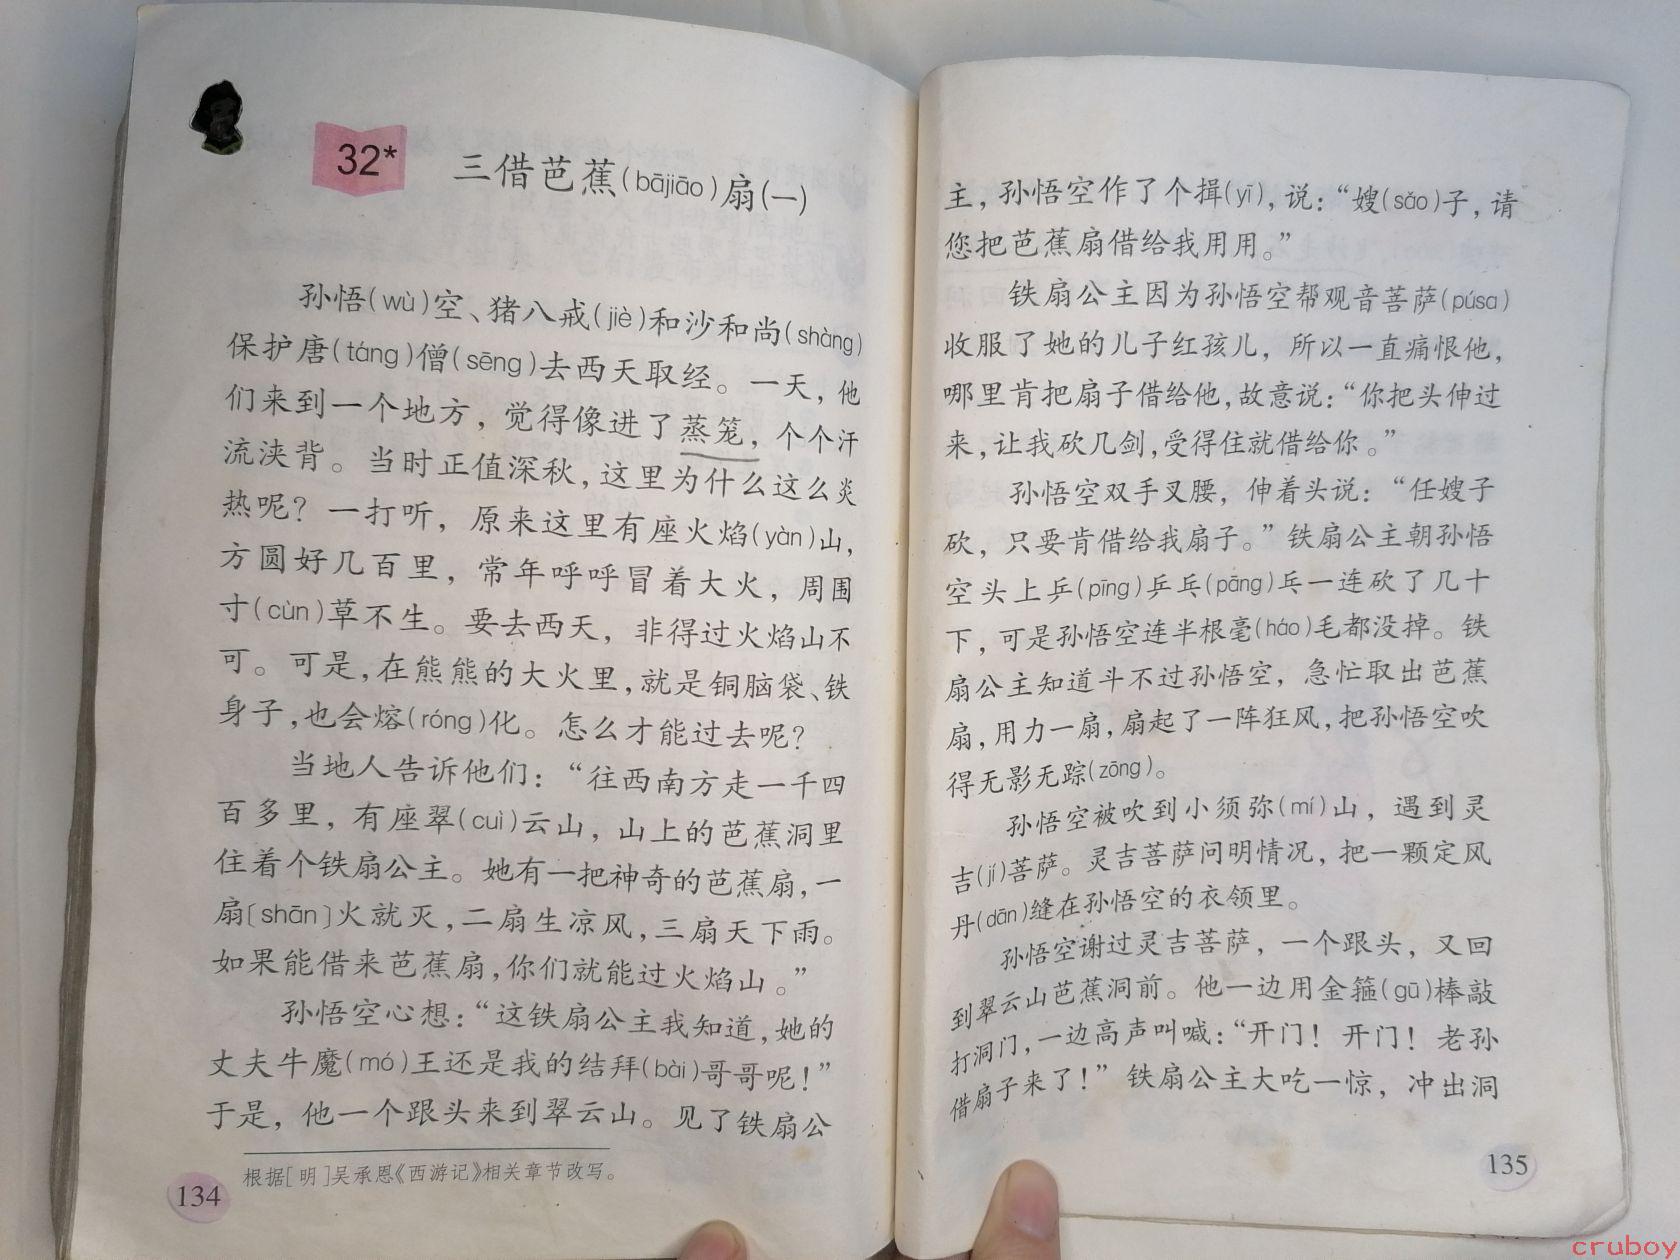 32*
三借芭蕉(bājiāo)扇(一)
孙悟(wù)空、猪八戒(jiè)和沙和尚(shàng)
保护唐(táng)僧(sēng)去西天取经。一天，他
们来到一个地方，觉得像进了蒸笼，个个汗
流浃背。当时正值深秋，这里为什么这么炎
热呢？一打听，原来这里有座火焰(yàn)山，
方圆好几百里，常年呼呼冒着大火，周围
寸(cùn)草不生。要去西天，非得过火焰山不
可。可是，在熊熊的大火里，就是铜脑袋、铁
身子，也会熔(róng)化。怎么才能过去呢？
当地人告诉他们：“往西南方走一千四
百多里，有座翠(cuì)云山，山上的芭蕉洞里
住着个铁扇公主。她有一把神奇的芭蕉扇，一
扇〔shān〕火就灭，二扇生凉风，三扇天下雨。
如果能借来芭蕉扇，你们就能过火焰山。”
孙悟空心想：“这铁扇公主我知道，她的
丈夫牛魔(mó)王还是我的结拜(bài)哥哥呢！”
于是，他一个跟头来到翠云山。见了铁扇公
根据［明］吴承恩《西游记》相关章节改写。
134
主，孙悟空作了个揖(yī)，说：“嫂(sǎo)子，请
您把芭蕉扇借给我用用。”
铁扇公主因为孙悟空帮观音菩萨(púsa)
收服了她的儿子红孩儿，所以一直痛恨他，
哪里肯把扇子借给他，故意说：“你把头伸过
来，让我砍几剑，受得住就借给你。”
孙悟空双手叉腰，伸着头说：“任嫂子
砍，只要肯借给我扇子。”铁扇公主朝孙悟
空头上乒(pīng)乒乓(pāng)乓一连砍了几十
下，可是孙悟空连半根毫(háo)毛都没掉。铁
扇公主知道斗不过孙悟空，急忙取出芭蕉
扇，用力一扇，扇起了一阵狂风，把孙悟空吹
得无影无踪(zōng)。
孙悟空被吹到小须弥(mí)山，遇到灵
吉(jí)菩萨。灵吉菩萨问明情况，把一颗定风
丹(dān)缝在孙悟空的衣领里。
孙悟空谢过灵吉菩萨，一个跟头，又回
到翠云山芭蕉洞前。他一边用金箍(gū)棒敲
打洞门，一边高声叫喊：“开门！开门！老孙
借扇子来了！”铁扇公主大吃一惊，冲出洞
135
cruboy